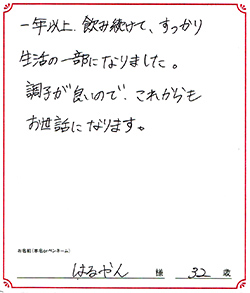 一年以上、飲み続けて、すっかり
生活の一部になりました。
調子が良いので、これからも
お世話になります。
お名前(本名orペンネーム)
はるやん 様 32 歳